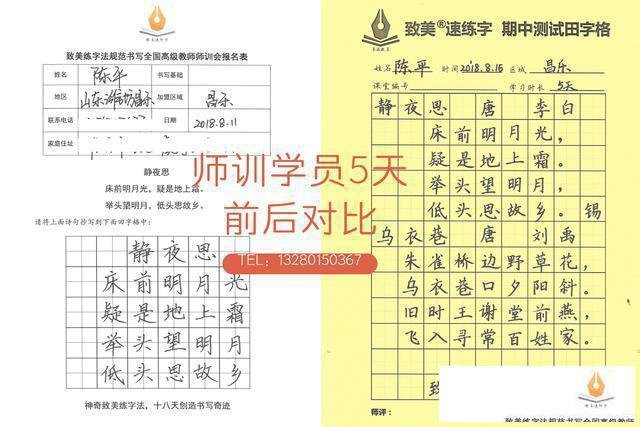 致美练字法
致美练字法规范书写全国高级教师师训会报名表
姓名 陈平 书写基础
地区 山东潍坊昌乐 加盟区域 昌乐
联系电话 日期 2018.8.11
家庭住址
静夜思
床前明月光，疑是地上霜。
举头望明月，低头思故乡。
请将上面诗句抄写到下面田字格中：
静夜思
床前明月光
疑是地上霜
举头望明月
低头思故乡
神奇致美练字法，十八天创造书写奇迹
致美®速练字 期中测试田字格
姓名 陈平 时间 2018.8.16 区域 昌乐
课堂编号 学习时长 5天
静夜思 唐 李白
床前明月光，
疑是地上霜。
举头望明月，
低头思故乡。锡
乌衣巷 唐 刘禹
朱雀桥边野草花，
乌衣巷口夕阳斜。
旧时王谢堂前燕，
飞入寻常百姓家。
致
师评：
致美练字法规范书写全国高级教师
师训学员5天
前后对比
TEL：13280150367